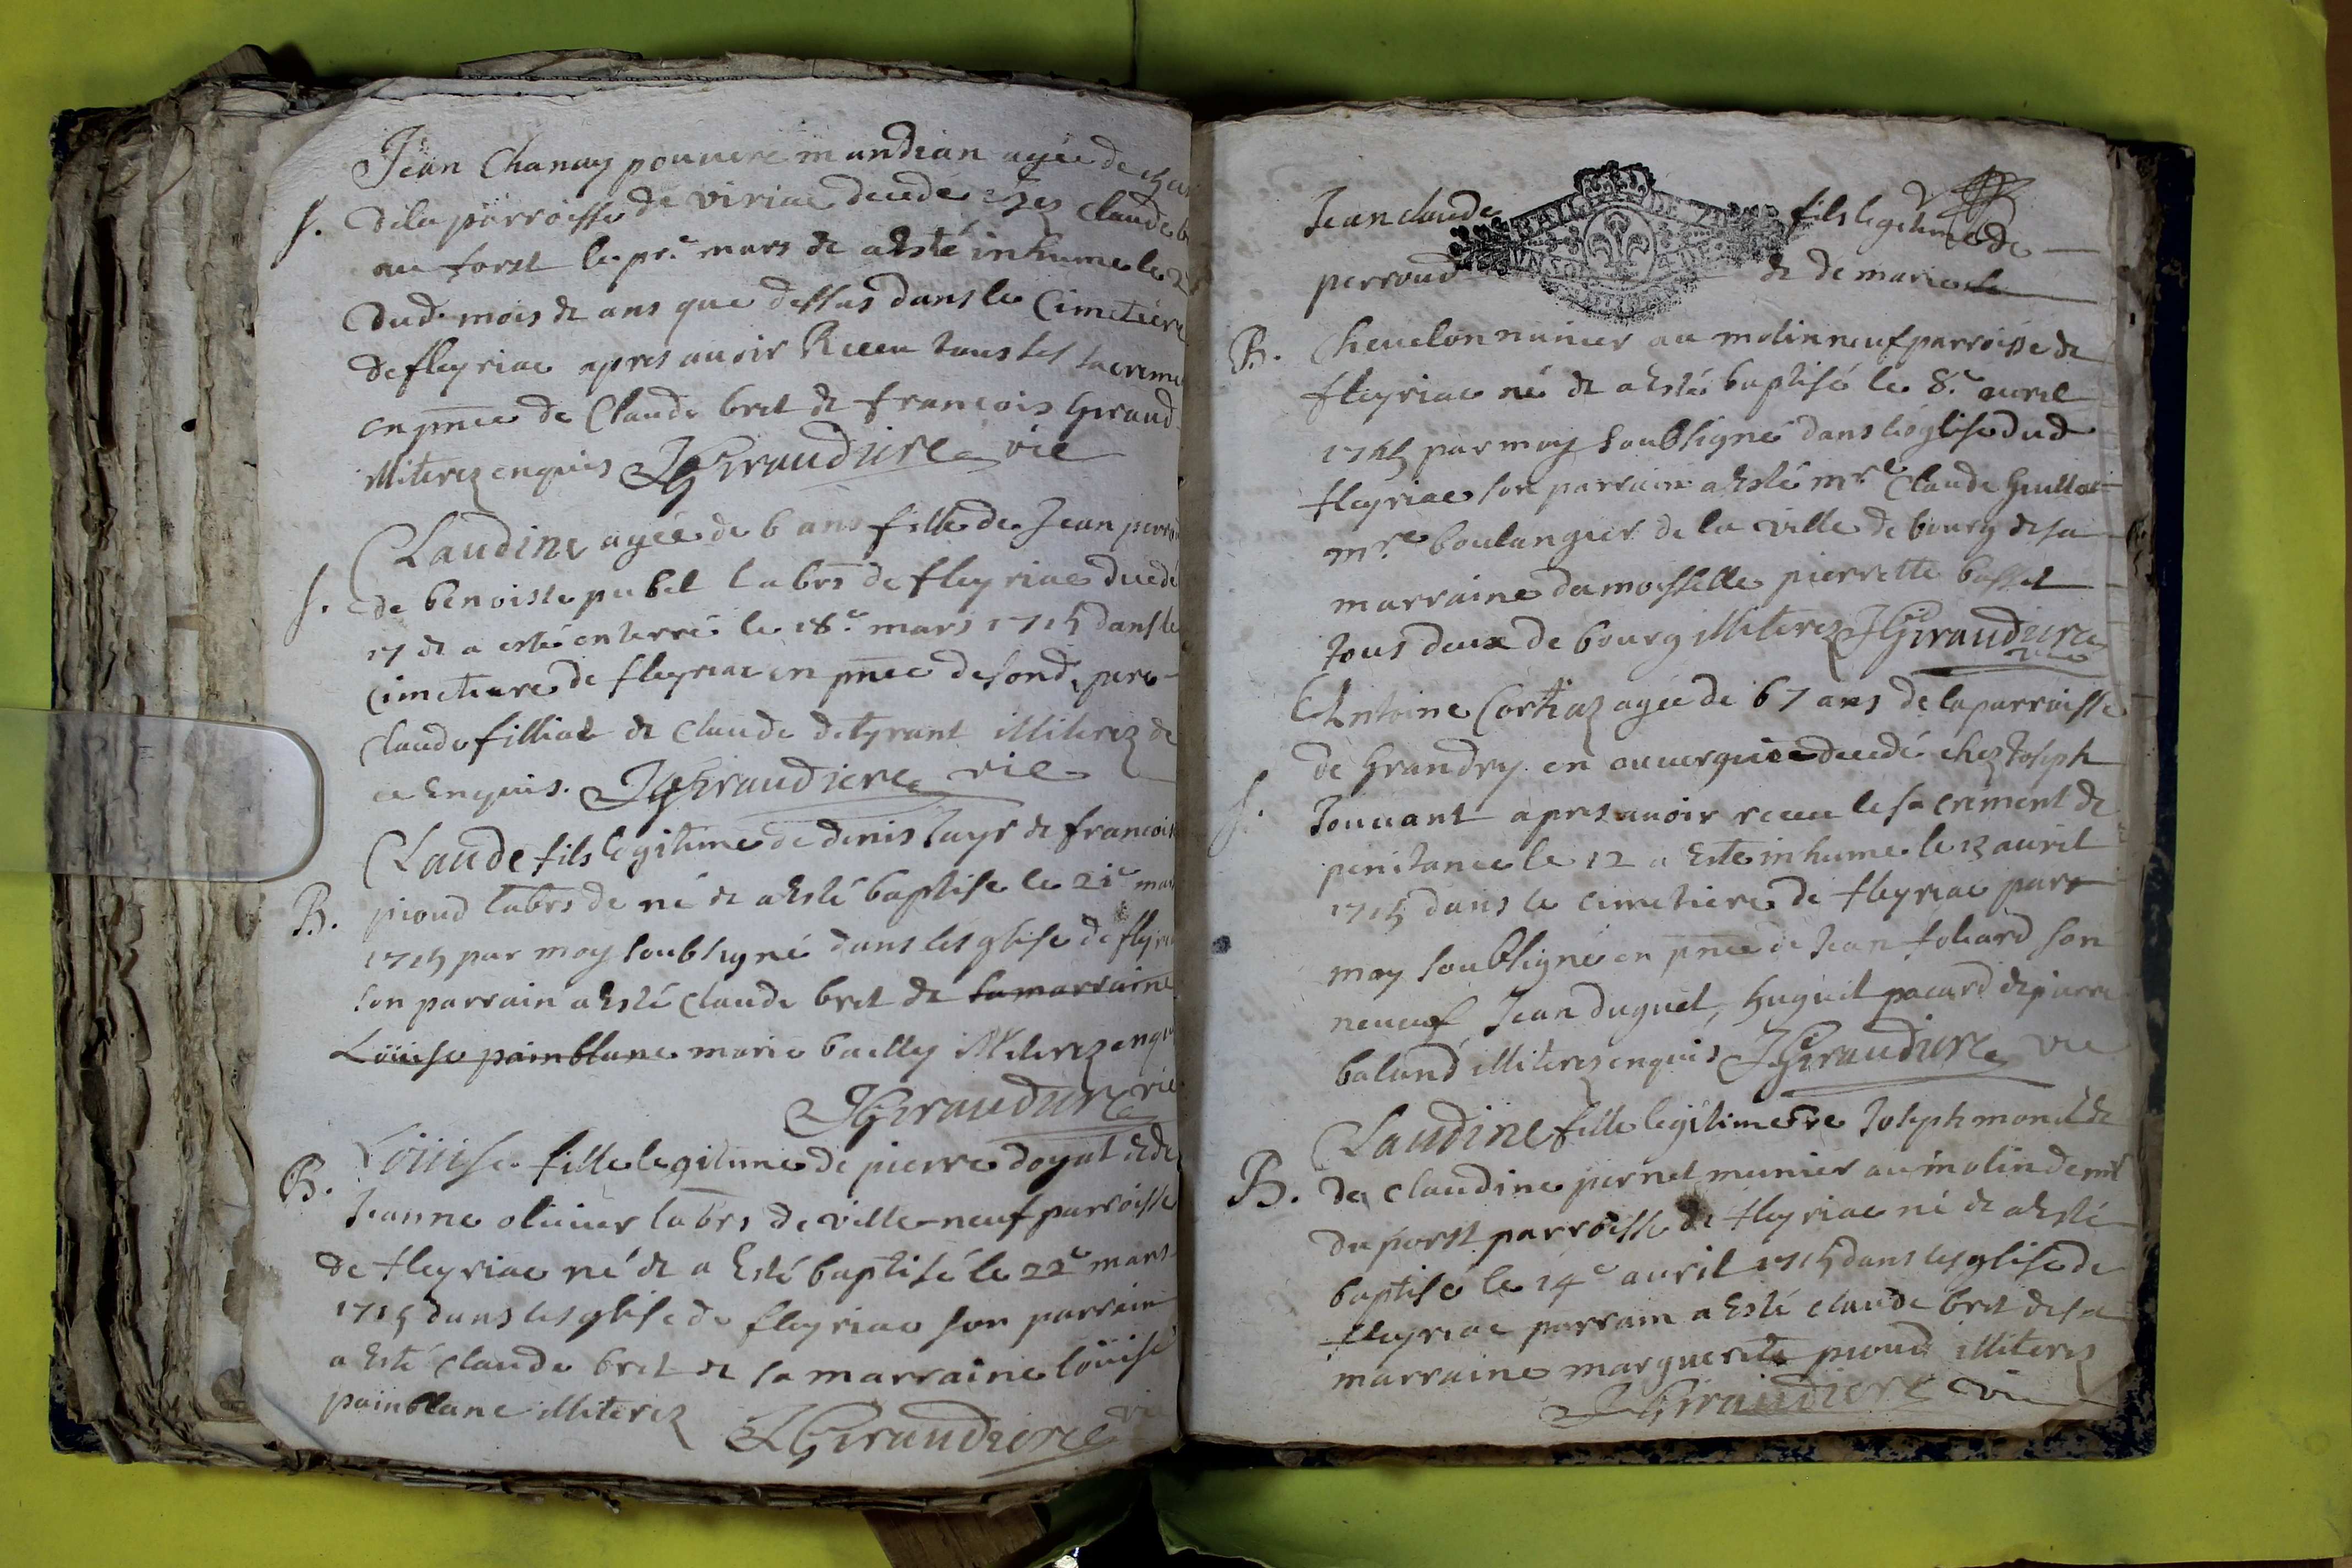 Jean Chanay pouvere mandian agée de
S. de la parroisse de viriac decede chez Claude
au forest le pr.e mars & a esté inhumé le 2
dud. mois & ans que dessus dans le Cimetiere
de fleyriac apres avoir Receu tous les sacreme
en pnce de Claude bret & francois Giraud
illiterez enquis JGiraudiere vic
Claudine agée de 6 ans fille de Jean perro
S. de benoiste pubel labrs de fleyriac decedé
17 & a esté enterré le 18.e mars 1715 dans le
cimetiere de fleyriac en pnce de son d. pere
claude filliat & claude detyrant illiterez de
ce Enquis. JGiraudiere vic
Claude fils legitime de denis Jayr & francoise
B. pioud labrs de né & a esté baptise le 21e mars
1715 par moy soubsigné dans lesglise de fleyria
son parrain a Esté claude bret & sa marraine
Louise painblanc marie bailly illiterez enquis
JGiraudiere vic
B. Louise fille legitime de pierre doyat & de
Jeanne olivier labrs de ville-neuf parroisse
de fleyriac né & a Esté baptisé le 22e mars
1715 dans lesglise de fleyriac son parrain
a Esté claude bret & sa marraine louise
painblanc illiterez JGiraudiere vic
Jean claude fils legitime de
perroud & de marie
B. Chevelon munier au molin neuf parroisse de
fleyriac né & a esté baptisé le 8.e avril
1715 par moy soubsigné dans l'eglise dud
fleyriac son parrain a Esté mr.e Claude Guillot
mr.e boulangier de la ville de bourg & sa
marraine damoisselle pierrette basset
tous deux de bourg illiterez JGiraudiere
vic
Antoine Cortiaz agée de 67 ans de la parroisse
de Grandry en auvergnie decedé chez Joseph
S. Jouvant apres avoir receu le sacrement de
penitance le 12 a Esté inhumé le 13 avril
1715 dans le cimetiere de fleyriac par
moy soubsigné en pnce de Jean foliard son
neveuf Jean duguet, huguet pacard & pierre
baland illiterez enquis JGiraudiere vic
Claudine fille legitime de Joseph monet &
B. de claudine pernet munier au molin de mr
du forest parroisse de fleyriac né & a Esté
baptisé le 14e avril 1715 dans lesglise de
fleyriac parrain a Esté claude bret & sa
marraine marguerite pioud illiterez
JGiraudiere vic